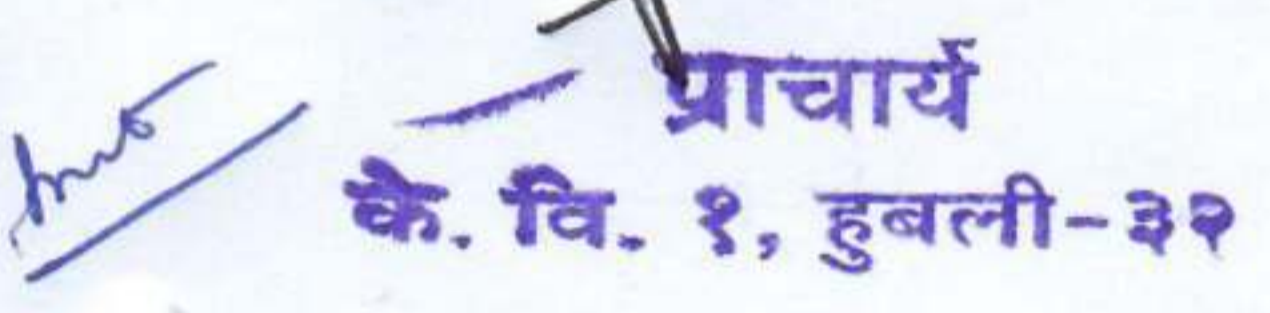 प्राचार्य
के. वि. १, हुबली-३२